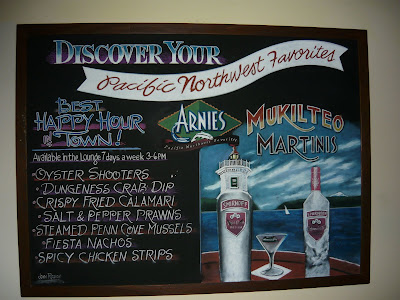 DISCOVER YOUR
Pacific Northwest Favorites
BEST
HAPPY HOUR
IN TOWN!
Available in the Lounge 7 days a week 3-6PM
• OYSTER SHOOTERS
• DUNGENESS CRAB DIP
• CRISPY FRIED CALAMARI
• SALT & PEPPER PRAWNS
• STEAMED PENN COVE MUSSELS
• FIESTA NACHOS
• SPICY CHICKEN STRIPS
ARNIES
Pacific Northwest
MUKILTEO
MARTINIS
SMIRNOFF
SMIRNOFF